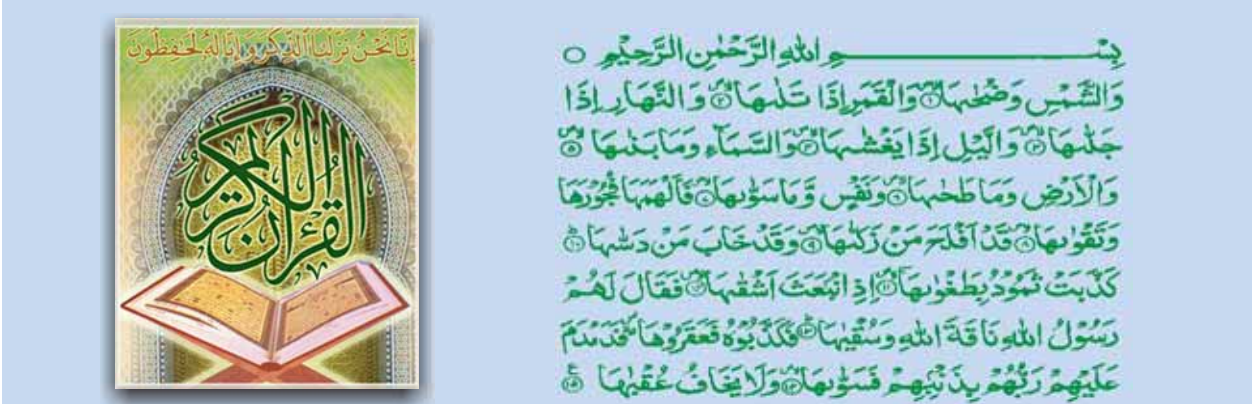 إِنَّا نَحْنُ نَزَّلْنَا الذِّكْرَ وَإِنَّا لَهُ لَحَافِظُونَ
القرآن الكريم
بِسْمِ اللهِ الرَّحْمٰنِ الرَّحِيْمِ ○
وَالشَّمْسِ وَضُحٰىهَا ۝١ وَالْقَمَرِ اِذَا تَلٰىهَا ۝٢ وَالنَّهَارِ اِذَا
جَلّٰىهَا ۝٣ وَالَّيْلِ اِذَا يَغْشٰىهَا ۝٤ وَالسَّمَآءِ وَمَا بَنٰىهَا ۝٥
وَالْاَرْضِ وَمَا طَحٰىهَا ۝٦ وَنَفْسٍ وَّمَا سَوّٰىهَا ۝٧ فَاَلْهَمَهَا فُجُوْرَهَا
وَتَقْوٰىهَا ۝٨ قَدْ اَفْلَحَ مَنْ زَكّٰىهَا ۝٩ وَقَدْ خَابَ مَنْ دَسّٰىهَا ۝١٠
كَذَّبَتْ ثَمُوْدُ بِطَغْوٰىهَا ۝١١ اِذِ انْۢبَعَثَ اَشْقٰىهَا ۝١٢ فَقَالَ لَهُمْ
رَسُوْلُ اللهِ نَاقَةَ اللهِ وَسُقْيٰهَا ۝١٣ فَكَذَّبُوْهُ فَعَقَرُوْهَا فَدَمْدَمَ
عَلَيْهِمْ رَبُّهُمْ بِذَنْۢبِهِمْ فَسَوّٰىهَا ۝١٤ وَلَا يَخَافُ عُقْبٰهَا ۝١٥